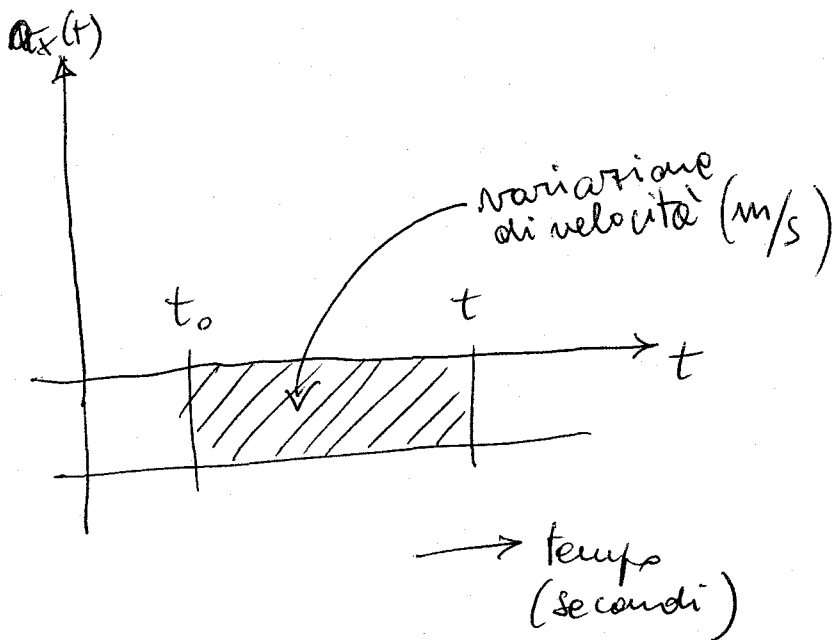 a_x(t)
variazione
di velocità (m/s)
t₀
t
t
tempo
(secondi)